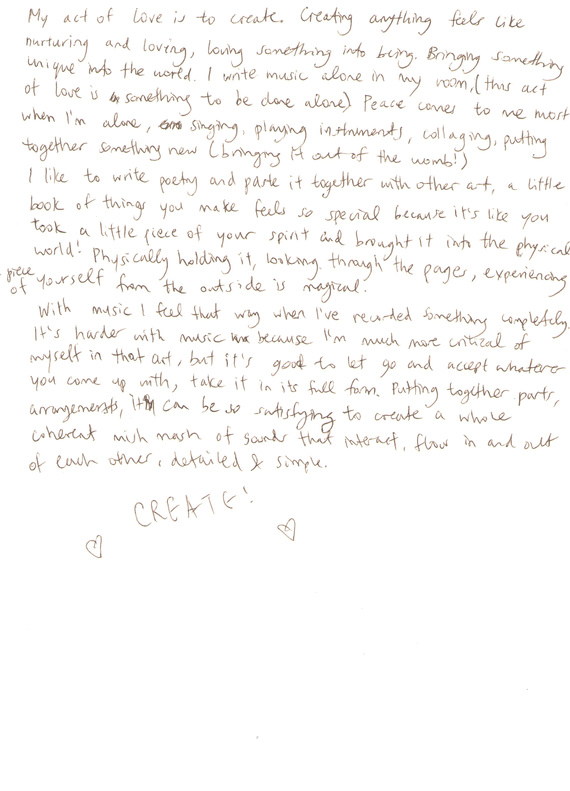 My act of love is to create. Creating anything feels like
nurturing and loving, loving something into being. Bringing something
unique into the world. I write music alone in my room, (this act
of love is something to be done alone) Peace comes to me most
when I'm alone, singing, playing instruments, collaging, putting
together something new (bringing it out of the womb!)
I like to write poetry and paste it together with other art, a little
book of things you make feels so special because it's like you
took a little piece of your spirit and brought it into the physical
world! Physically holding it, looking through the pages, experiencing
piece
of yourself from the outside is magical.
With music I feel that way when I've recorded something completely.
It's harder with music because I'm much more critical of
myself in that art, but it's good to let go and accept whatever
you come up with, take it in its full form. Putting together parts,
arrangements, it can be so satisfying to create a whole
coherent mish mash of sounds that interact, flow in and out
of each other, detailed & simple.
CREATE!